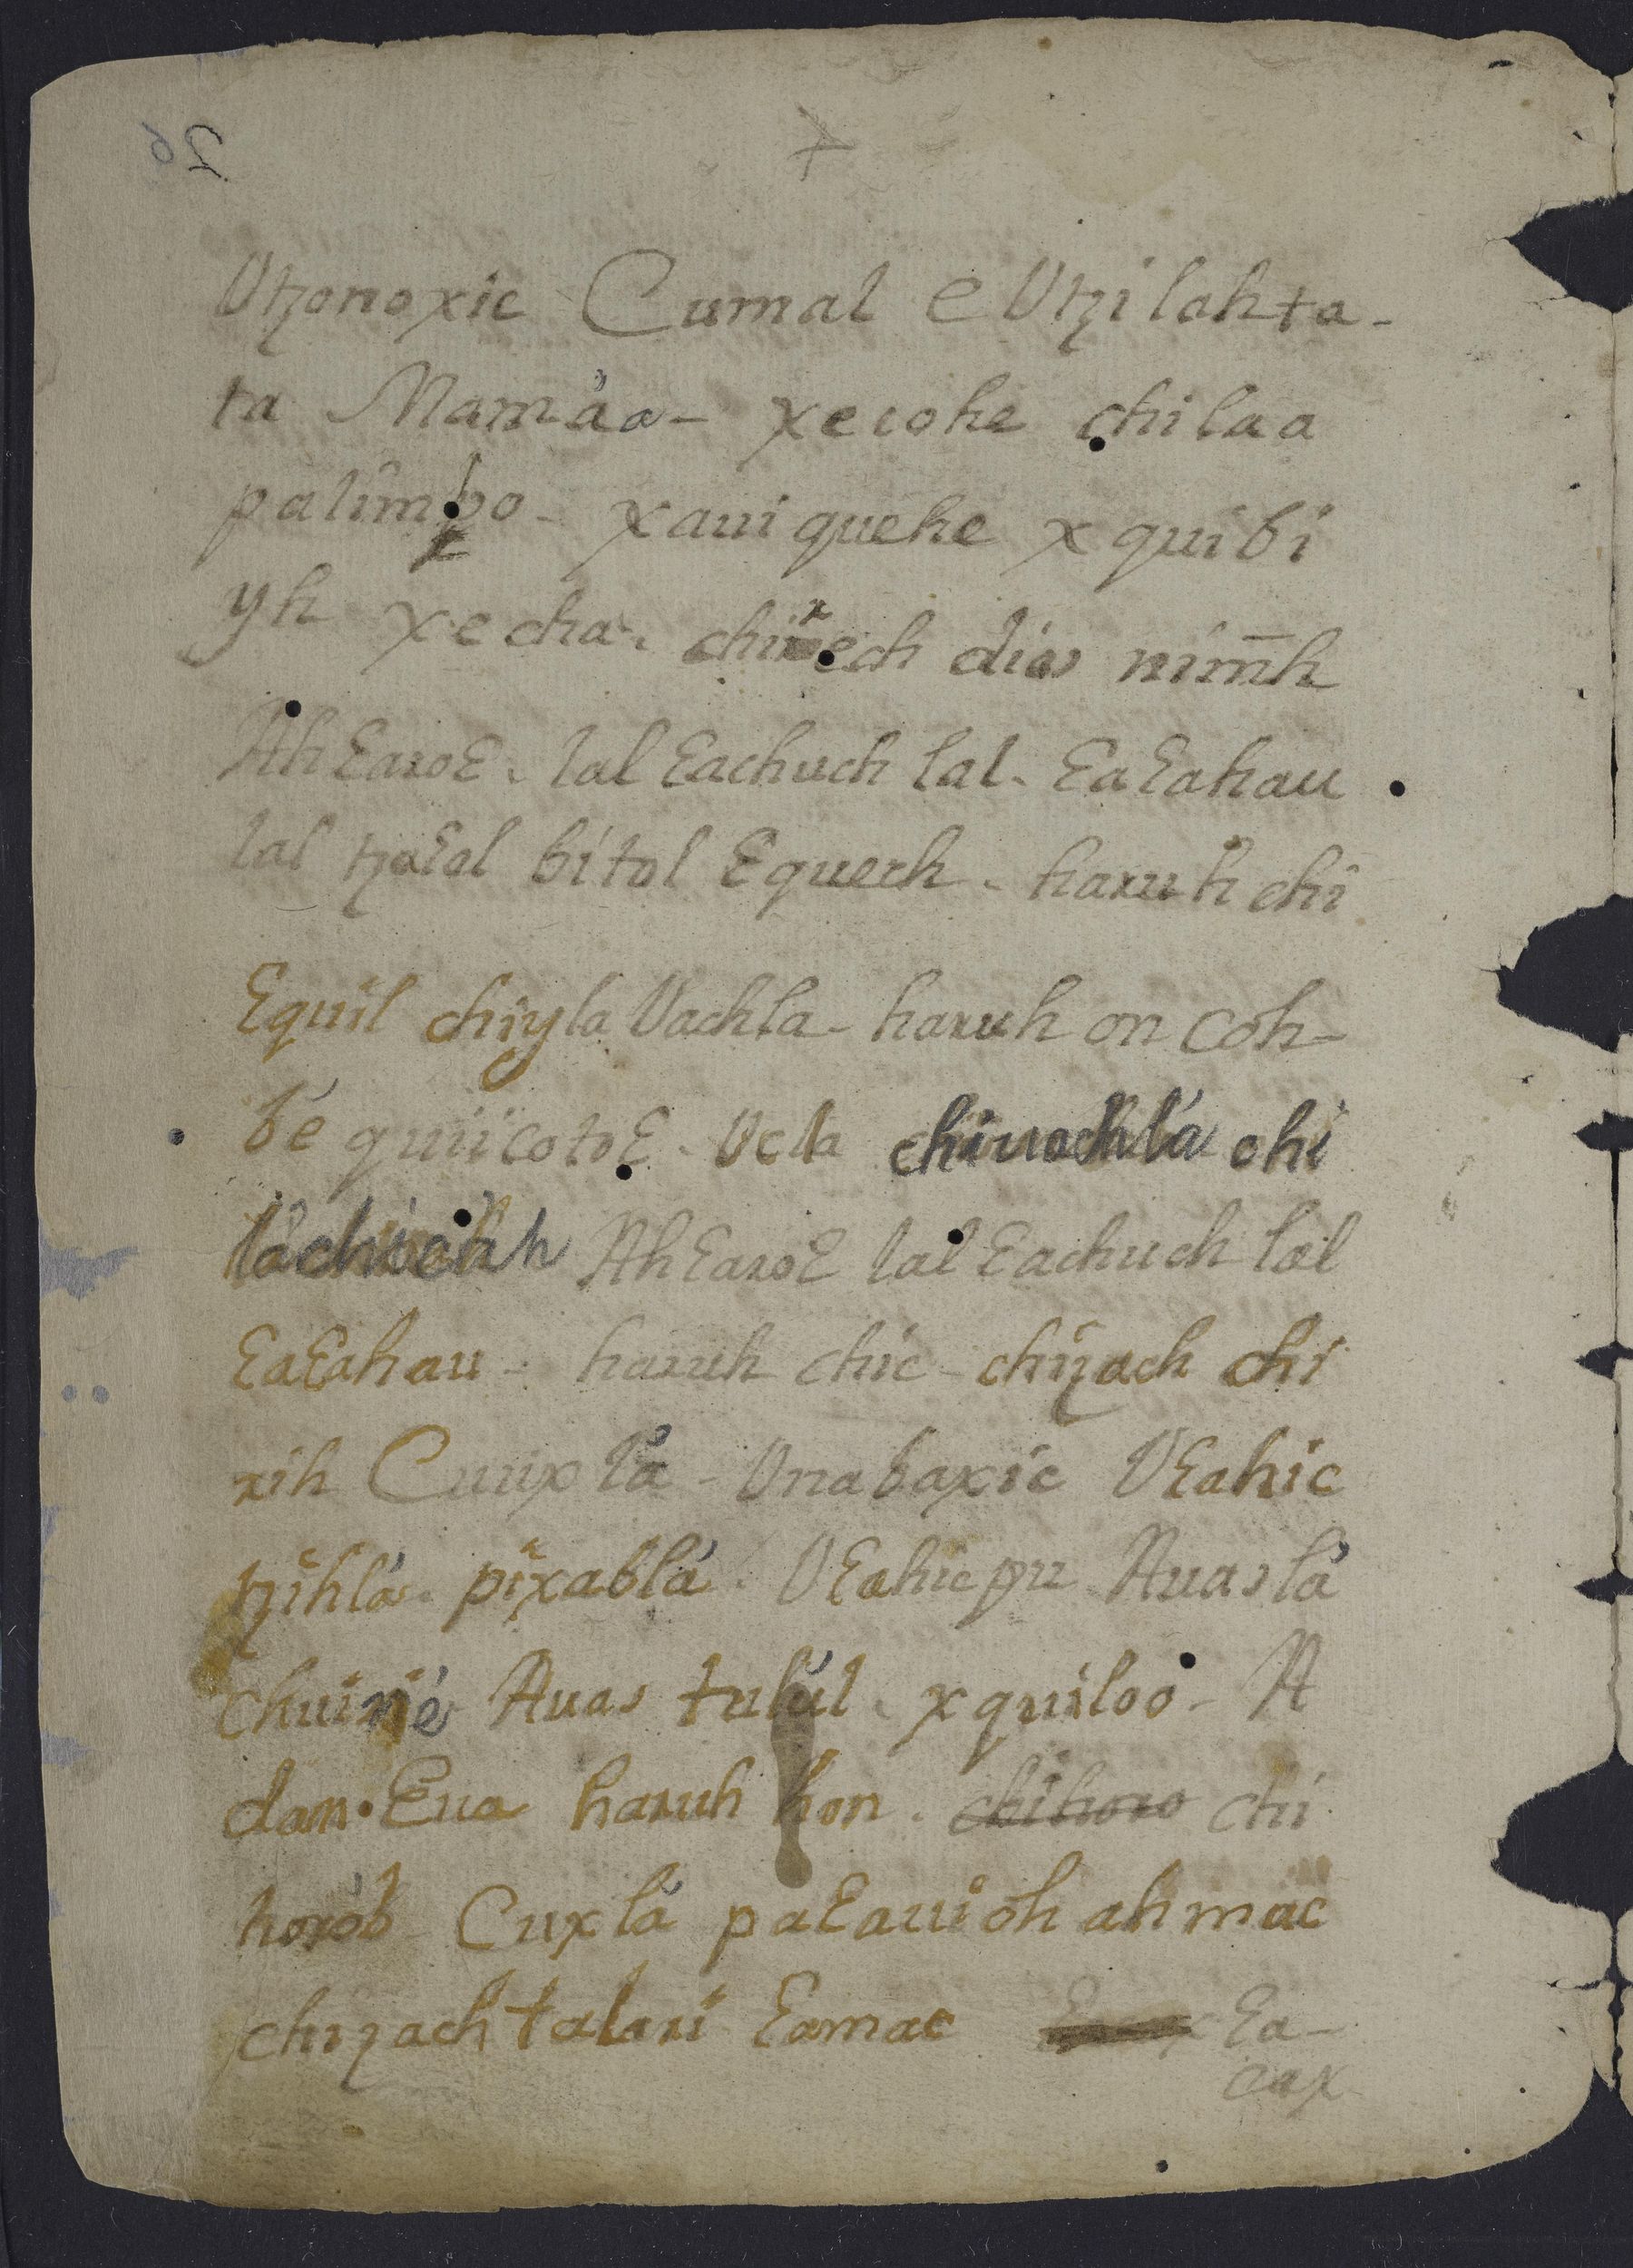 Utzonoxic Cumal e Utzilahta-
ta Mamaa- xecohe chilaa
palimbo- xaui quehe xquibi
yh xecha. chirech dios nim̄h
Ahɛaxoɛ. lal ɛachuch lal. ɛaɛahau
lal tzaɛol bitol ɛquech. haruh chi
ɛquil chiyla Vachla- haruh on coh-
be quiicotoɛ. Vcla chiuachlá chi
láchich Ahɛaxoɛ lal ɛachuch lal
ɛaɛahau- haruh chic- chizach chi
rih Cuuxlá- Unabaxic Vɛahic
tzihlá. pixablá. Vɛahic pu Auaslá
chuirié Auas tulúl. xquiloo- A
dan. Eua haruh hon. chihoxo chi
hoxób Cuxlá paɛauioh ahmac
chizach taluri ɛamac ɛa-
cax